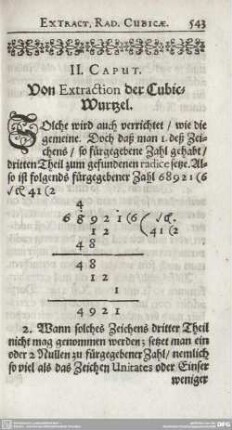 EXTRACT. RAD. CUBICÆ. 543
II. CAPUT.
Von Extraction der Cubic-
Wurtzel.
SOlche wird auch verrichtet / wie die
gemeine. Doch daß man 1. deß Zei-
chens / so fürgegebene Zahl gehabt /
dritten Theil zum gefundenen radice setze. Al-
so ist folgends fürgegebener Zahl 68921 (6
41 (2
4
6 8 9 2 1 (6
1 2 41 (2
4 8
4 8
1 2
1
4 9 2 1
2. Wann solches Zeichens dritter Theil
nicht mag genommen werden; setzet man ein
oder 2 Nullen zu fürgegebener Zahl / nemlich
so viel als das Zeichen Unitates oder Einser
weniger